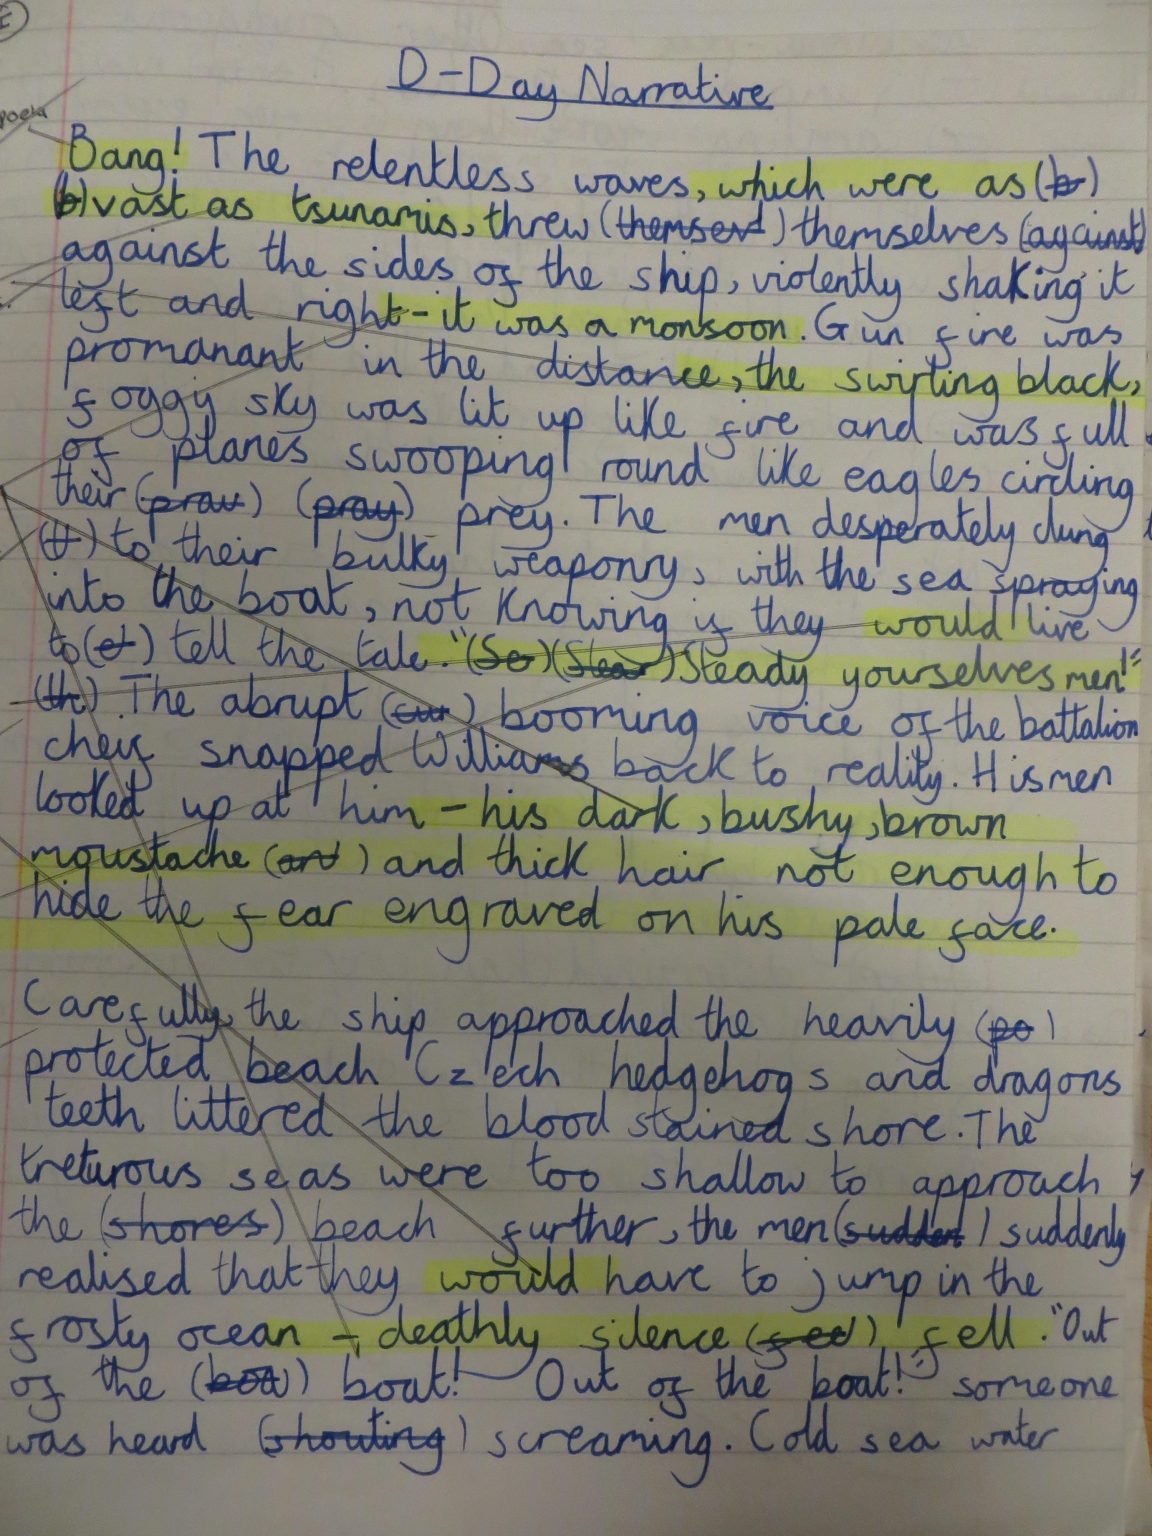 E
D-Day Narrative
poeia
Bang! The relentless waves, which were as (b)
(b) vast as tsunamis, threw (themserd) themselves (against)
against the sides of the ship, violently shaking it
left and right - it was a monsoon. Gun fire was
promanant in the distance, the swirling black,
foggy sky was lit up like fire and was full
of planes swooping round like eagles circling
their (prau) (pray) prey. The men desperately clung
(t) to their bulky weaponry, with the sea spraying
into the boat, not knowing if they would live
to (et) tell the tale. "(Se) (Stear) Steady yourselves men!"
(th). The abrupt (cur) booming voice of the battalion
cheif snapped Williams back to reality. His men
looked up at him - his dark, bushy, brown
moustache (and) and thick hair not enough to
hide the fear engraved on his pale face.
Carefully, the ship approached the heavily (po)
protected beach Czech hedgehogs and dragons
teeth littered the blood stained shore. The
treturous seas were too shallow to approach
the (shores) beach further, the men (sudden) suddenly
realised that they would have to jump in the
frosty ocean - deathly silence (fed) fell. "Out
of the (boa) boat! Out of the boat!" someone
was heard (shouting) screaming. Cold sea water